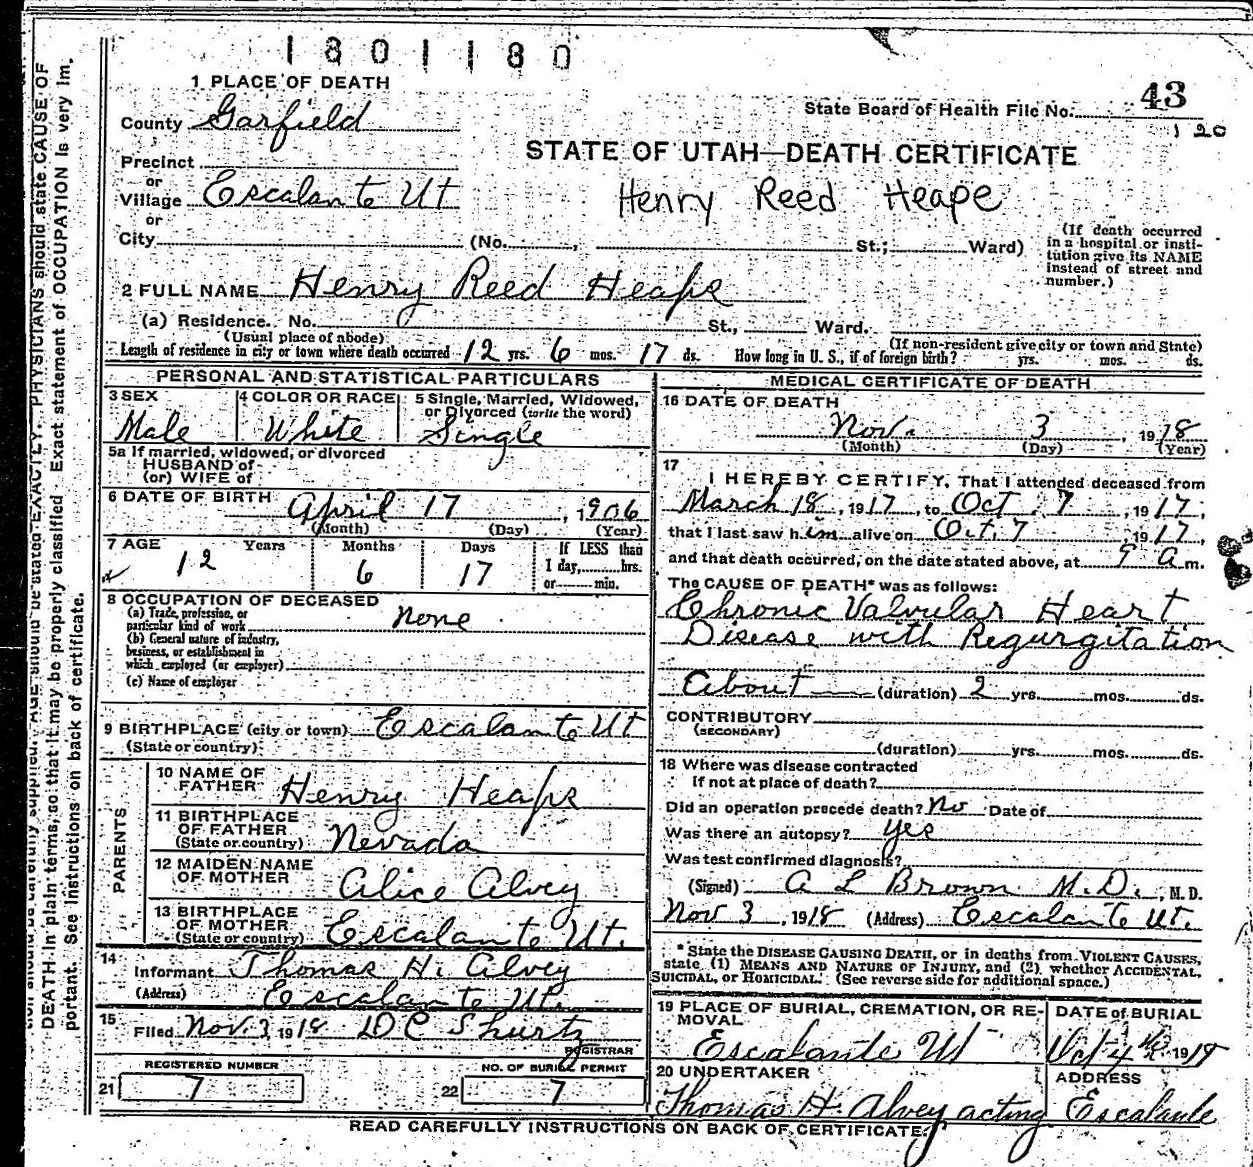 1801180
1 PLACE OF DEATH
State Board of Health File No. 43
1 20
County Garfield
STATE OF UTAH—DEATH CERTIFICATE
Precinct
or
Village Escalante Ut
Henry Reed Heape
or
City (No. , St.; Ward)
(If death occurred
in a hospital or insti-
tution give its NAME
instead of street and
number.)
2 FULL NAME Henry Reed Heaps
(a) Residence. No. St., Ward.
(Usual place of abode) (If non-resident give city or town and State)
Length of residence in city or town where death occurred 12 yrs. 6 mos. 17 ds. How long in U. S., if of foreign birth? yrs. mos. ds.
PERSONAL AND STATISTICAL PARTICULARS
3 SEX
Male
4 COLOR OR RACE
White
5 Single, Married, Widowed,
or Divorced (write the word)
Single
5a If married, widowed, or divorced
HUSBAND of
(or) WIFE of
6 DATE OF BIRTH April 17, 1906
(Month) (Day) (Year)
7 AGE
Years Months Days
12 6 17
If LESS than
1 day, hrs.
or min.
8 OCCUPATION OF DECEASED
(a) Trade, profession, or
particular kind of work none
(b) General nature of industry,
business, or establishment in
which employed (or employer)
(c) Name of employer
9 BIRTHPLACE (city or town) Escalante Ut
(State or country)
PARENTS
10 NAME OF
FATHER Henry Heaps
11 BIRTHPLACE
OF FATHER
(State or country) Nevada
12 MAIDEN NAME
OF MOTHER Alice Alvey
13 BIRTHPLACE
OF MOTHER
(State or country) Escalante Ut.
14
Informant Thomas H. Alvey
(Address) Escalante Ut.
15
Filed Nov. 3 1918 D C Shurtz
REGISTRAR
REGISTERED NUMBER
21 7
NO. OF BURIAL PERMIT
22 7
MEDICAL CERTIFICATE OF DEATH
16 DATE OF DEATH
Nov. 3, 1918
(Month) (Day) (Year)
17
I HEREBY CERTIFY, That I attended deceased from
March 18, 1917, to Oct. 7, 1917,
that I last saw him alive on Oct. 7, 1917,
and that death occurred, on the date stated above, at 9 a m.
The CAUSE OF DEATH* was as follows:
Chronic Valvular Heart
Disease with Regurgitation
About (duration) 2 yrs. mos. ds.
CONTRIBUTORY
(SECONDARY)
(duration) yrs. mos. ds.
18 Where was disease contracted
if not at place of death?
Did an operation precede death? No Date of
Was there an autopsy? yes
Was test confirmed diagnosis?
(Signed) A L Brown M.D., M. D.
Nov 3, 1918 (Address) Escalante Ut.
* State the DISEASE CAUSING DEATH, or in deaths from VIOLENT CAUSES,
state (1) MEANS AND NATURE OF INJURY, and (2) whether ACCIDENTAL,
SUICIDAL, or HOMICIDAL. (See reverse side for additional space.)
19 PLACE OF BURIAL, CREMATION, OR RE-
MOVAL
Escalante Ut
DATE of BURIAL
Oct 4th 1918
20 UNDERTAKER
Thomas H. Alvey acting
ADDRESS
Escalante
READ CAREFULLY INSTRUCTIONS ON BACK OF CERTIFICATE.
tion should be carefully supplied. AGE should be stated EXACTLY. PHYSICIANS should state CAUSE OF
DEATH in plain terms, so that it may be properly classified. Exact statement of OCCUPATION is very im-
portant. See instructions on back of certificate.